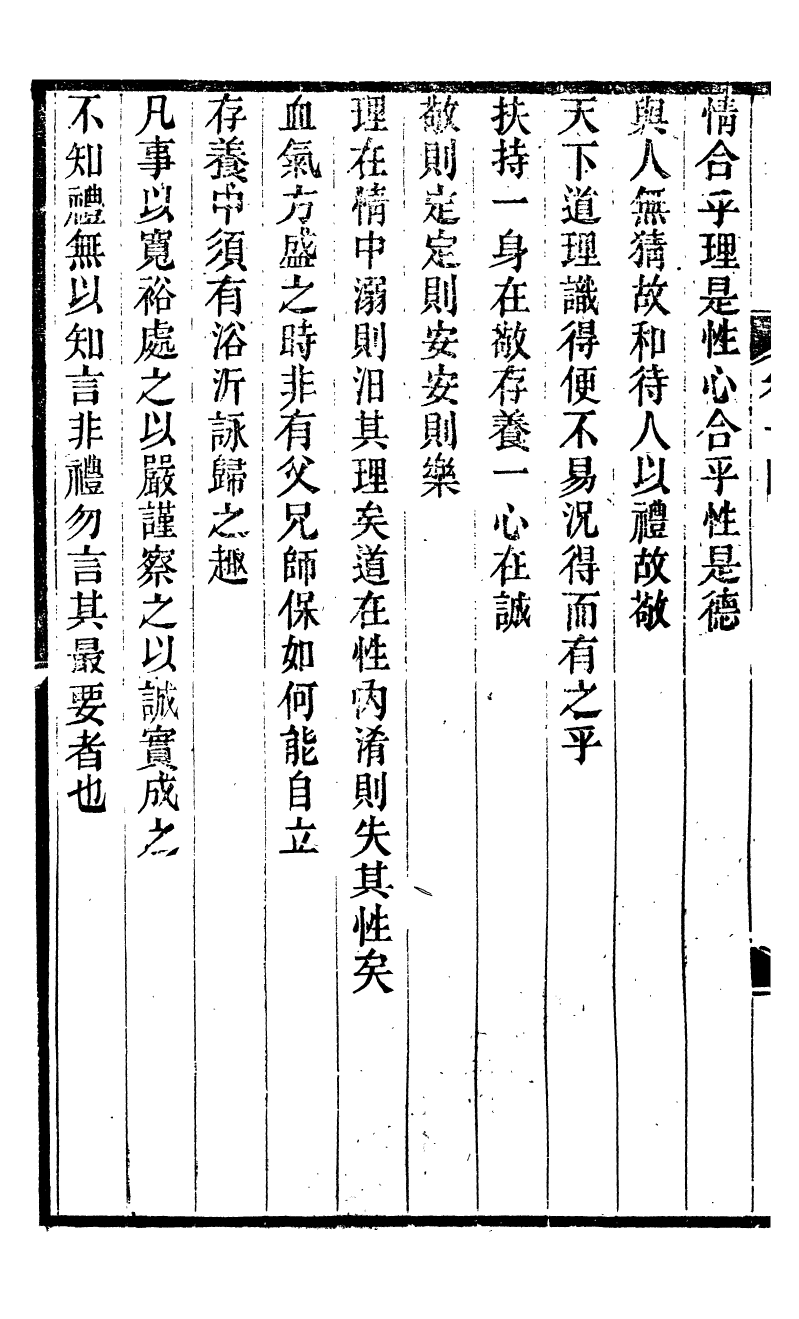 情合乎理是性心合乎性是德
與人無猜故和待人以禮故敬
天下道理識得便不易況得而有之乎
扶持一身在敬存養一心在誠
敬則定定則安安則樂
理在情中溺則汩其理矣道在性內淆則失其性矣
血氣方盛之時非有父兄師保如何能自立
存養中須有浴沂詠歸之趣
凡事以寬裕處之以嚴謹察之以誠實成之
不知禮無以知言非禮勿言其最要者也